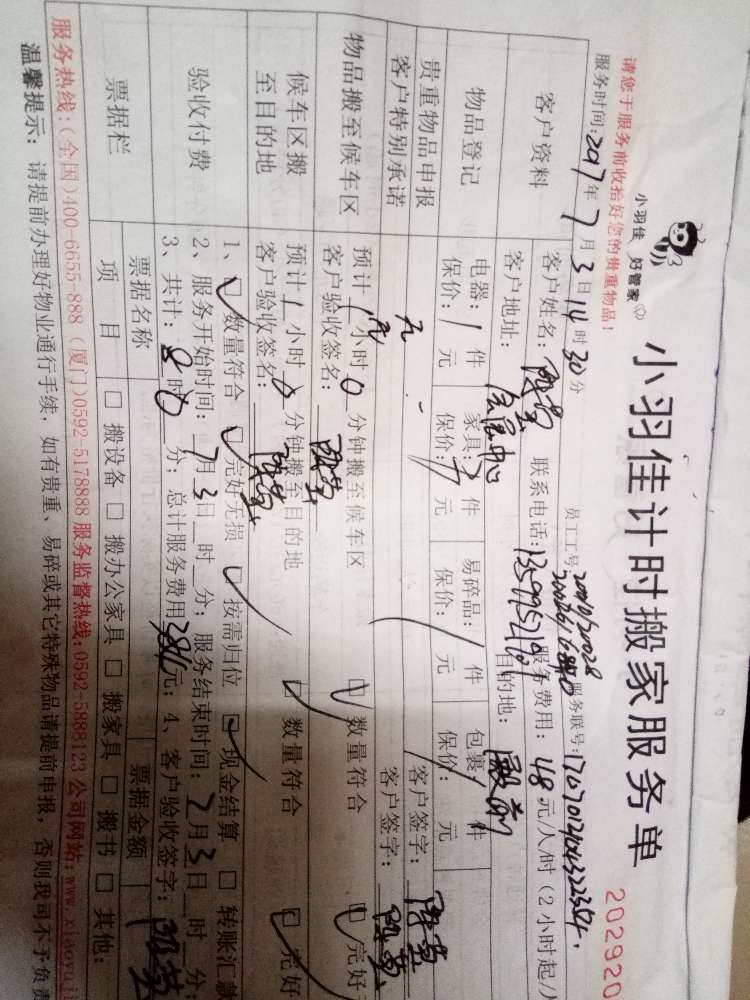 小羽佳 好管家
小羽佳计时搬家服务单
202920
请您于服务前收拾好您的贵重物品！
员工工号 服务联号:
服务时间:2017年7月3日14时30分
客户资料
客户姓名: 联系电话: 服务费用: 48元/人/时(2小时起/
客户地址: 会展中心 目的地: 殿前
物品登记
电器: 件 家具: 件 易碎品: 件 包裹: 件
保价: 元 保价: 元 保价: 元 保价: 元
贵重物品申报 客户签字:
客户特别承诺 无 客户签字:
物品搬至候车区
预计 小时0分钟搬至候车区 数量符合 完好
客户验收签名:
候车区搬至目的地
预计1小时0分钟搬至目的地 数量符合 完好
客户验收签名:
验收付费
1、 数量符合 完好无损 按需归位 现金结算 转账汇款
2、服务开始时间: 7月3日 时 分; 服务结束时间: 7月3日 时 分;
3、共计: 8时0分; 总计服务费用384元; 4、客户验收签字:
票据栏
票据名称 票据金额
项目 搬设备 搬办公家具 搬家具 搬书 其他:
服务热线:(全国)400-6655-888 (厦门)0592-5178888 服务监督热线:0592-5888123 公司网站:www.xiaoyuji
温馨提示: 请提前办理好物业通行手续, 如有贵重、易碎或其它特殊物品请提前申报, 否则我司不予负责